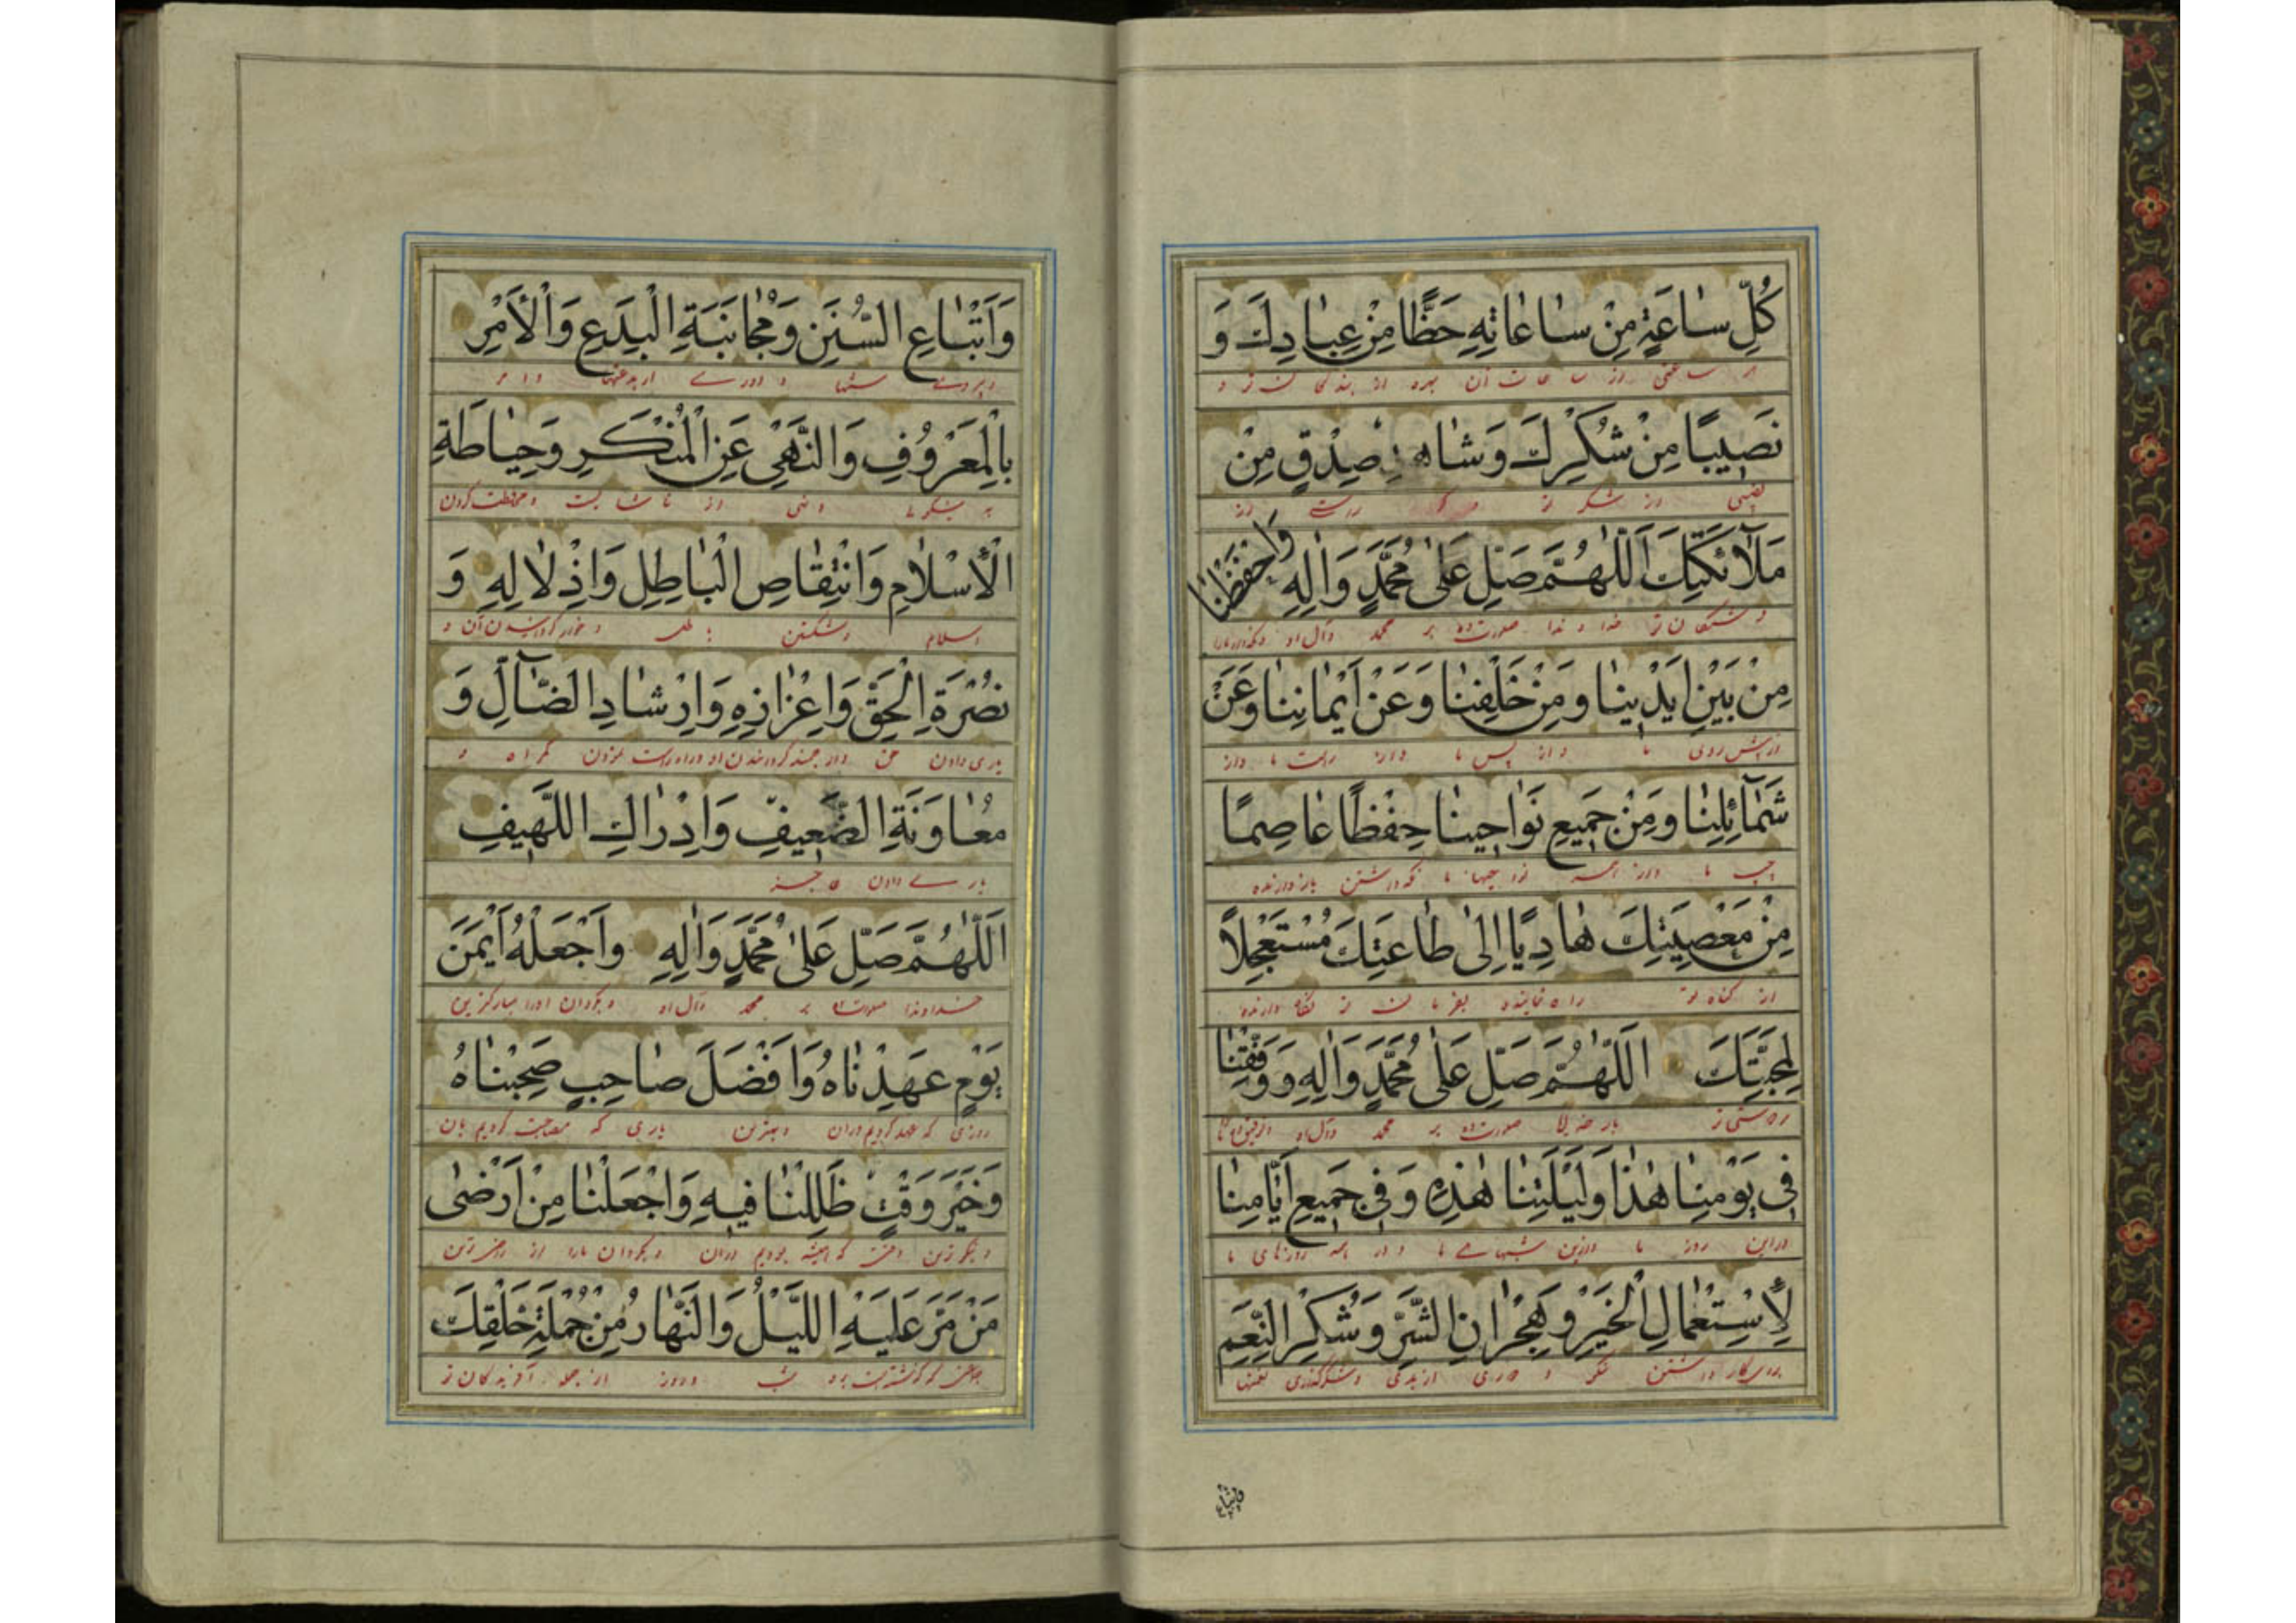 كُلِّ سٰاعَةٍ مِنْ سٰاعٰاتِهِ حَظًّا مِنْ عِبٰادِكَ وَ
از ساعات آن بهره از بندگان تو و
نَصيبًا مِنْ شُكْرِكَ وَشٰاهِدَ صِدْقٍ مِنْ
نصیبی از شکر تو
مَلٰٓائِكَتِكَ اَللّٰهُمَّ صَلِّ عَلىٰ مُحَمَّدٍ وَاٰلِهِ وَاحْفَظْنٰا
بر محمد وآل او
مِنْ بَيْنِ اَيْدينٰا وَمِنْ خَلْفِنٰا وَعَنْ اَيْمٰانِنٰا وَعَنْ
از پیش روی ما و از پس ما واز راست ما واز
شَمٰٓائِلِنٰا وَمِنْ جَميعِ نَوٰاحينٰا حِفْظًا عٰاصِمًا
چپ ما واز همه نگه داشتن بازدارنده
مِنْ مَعْصِيَتِكَ هٰادِيًا اِلىٰ طٰاعَتِكَ مُسْتَعْجِلًا
از گناه تو راه نماینده بفرمان تو
لِمَحَبَّتِكَ اَللّٰهُمَّ صَلِّ عَلىٰ مُحَمَّدٍ وَاٰلِهِ وَوَفِّقْنٰا
بار خدایا صلوات ده بر محمد وآل او
فى يَوْمِنٰا هٰذٰا وَلَيْلَتِنٰا هٰذِهِ وَفى جَميعِ اَيّٰامِنٰا
دراین روز ما ودرین شبهای ما و در همه روزهای ما
لِأسْتِعْمٰالِ الْخَيْرِ وَهِجْرٰانِ الشَّرِّ وَشُكْرِ النِّعَمِ
وشکرگذاری نعمتها
وَاتِّبٰاع
وَاَتِّبٰاعِ السُّنَنِ وَمُجٰانَبَةِ الْبِدَعِ وَالْأَمْرِ
وپیروی سنتها و دوری از بدعتها وامر
بِالْمَعْرُوفِ وَالنَّهْىِ عَنِ الْمُنْكَرِ وَحِيٰاطَةِ
ونهی از ناشایست ومحافظت کردن
الْأِسْلٰامِ وَانْتِقٰاصِ الْبٰاطِلِ وَاِذْلٰالِهِ وَ
اسلام وشکستن باطل وخوار گردانیدن آن و
نُصْرَةِ الْحَقِّ وَاِعْزٰازِهِ وَاِرْشٰادِ الضّٰٓالِّ وَ
یاری دادن حق وارجمند گردانیدن او وراه راست نمودن گمراه و
مُعٰاوَنَةِ الضَّعيفِ وَاِدْرٰاكِ اللَّهيفِ
یاری دادن عاجز
اَللّٰهُمَّ صَلِّ عَلىٰ مُحَمَّدٍ وَاٰلِهِ وَاَجْعَلْهُ اَيْمَنَ
خداوندا صلوات ده بر محمد وآل او وبگردان اورا مبارکترین
يَوْمٍ عَهِدْنٰاهُ وَاَفْضَلَ صٰاحِبٍ صَحِبْنٰاهُ
روزی که عهد کردیم دران وبهترین یاری که مصاحبت کردیم بان
وَخَيْرَ وَقْتٍ ظَلِلْنٰا فيهِ وَاجْعَلْنٰا مِنْ اَرْضىٰ
ونیکوترین وقت که همیشه بودیم دران وبگردان مارا از راضی ترین
مَنْ مَرَّ عَلَيْهِ اللَّيْلُ وَالنَّهٰارُ مِنْ جُمْلَةِ خَلْقِكَ
شب وروز از جمله آفریدگان تو